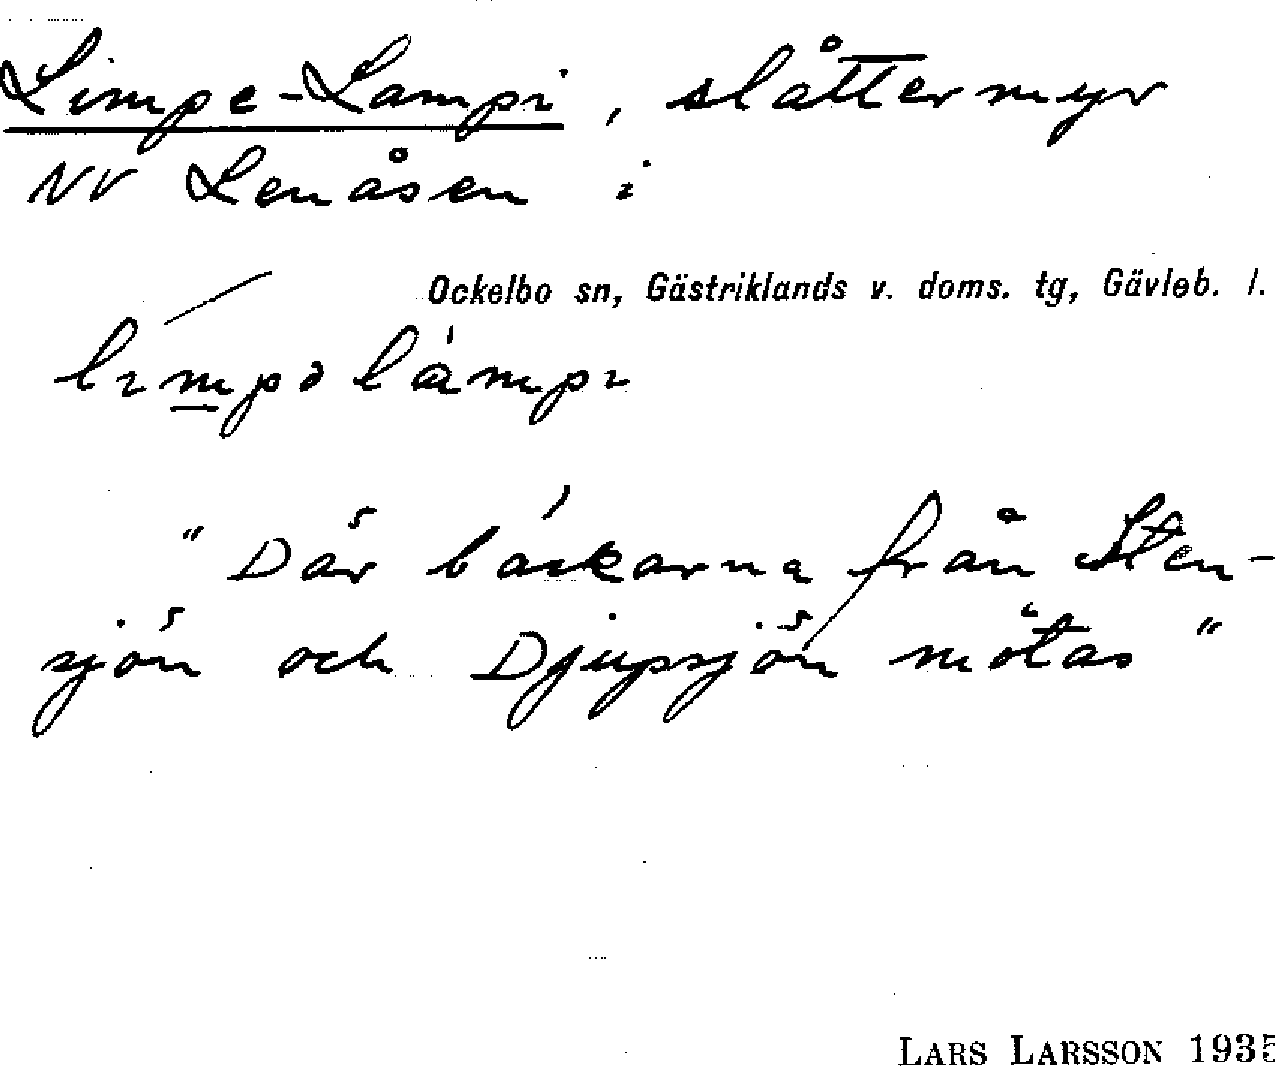 Limpe-Lampi, slåttermyr
NV Lenåsen i
Ockelbo sn, Gästriklands v. doms. tg, Gävleb. l.
"Där bäckarna från Sten-
sjön och Djupsjön mötas"
LARS LARSSON 1935